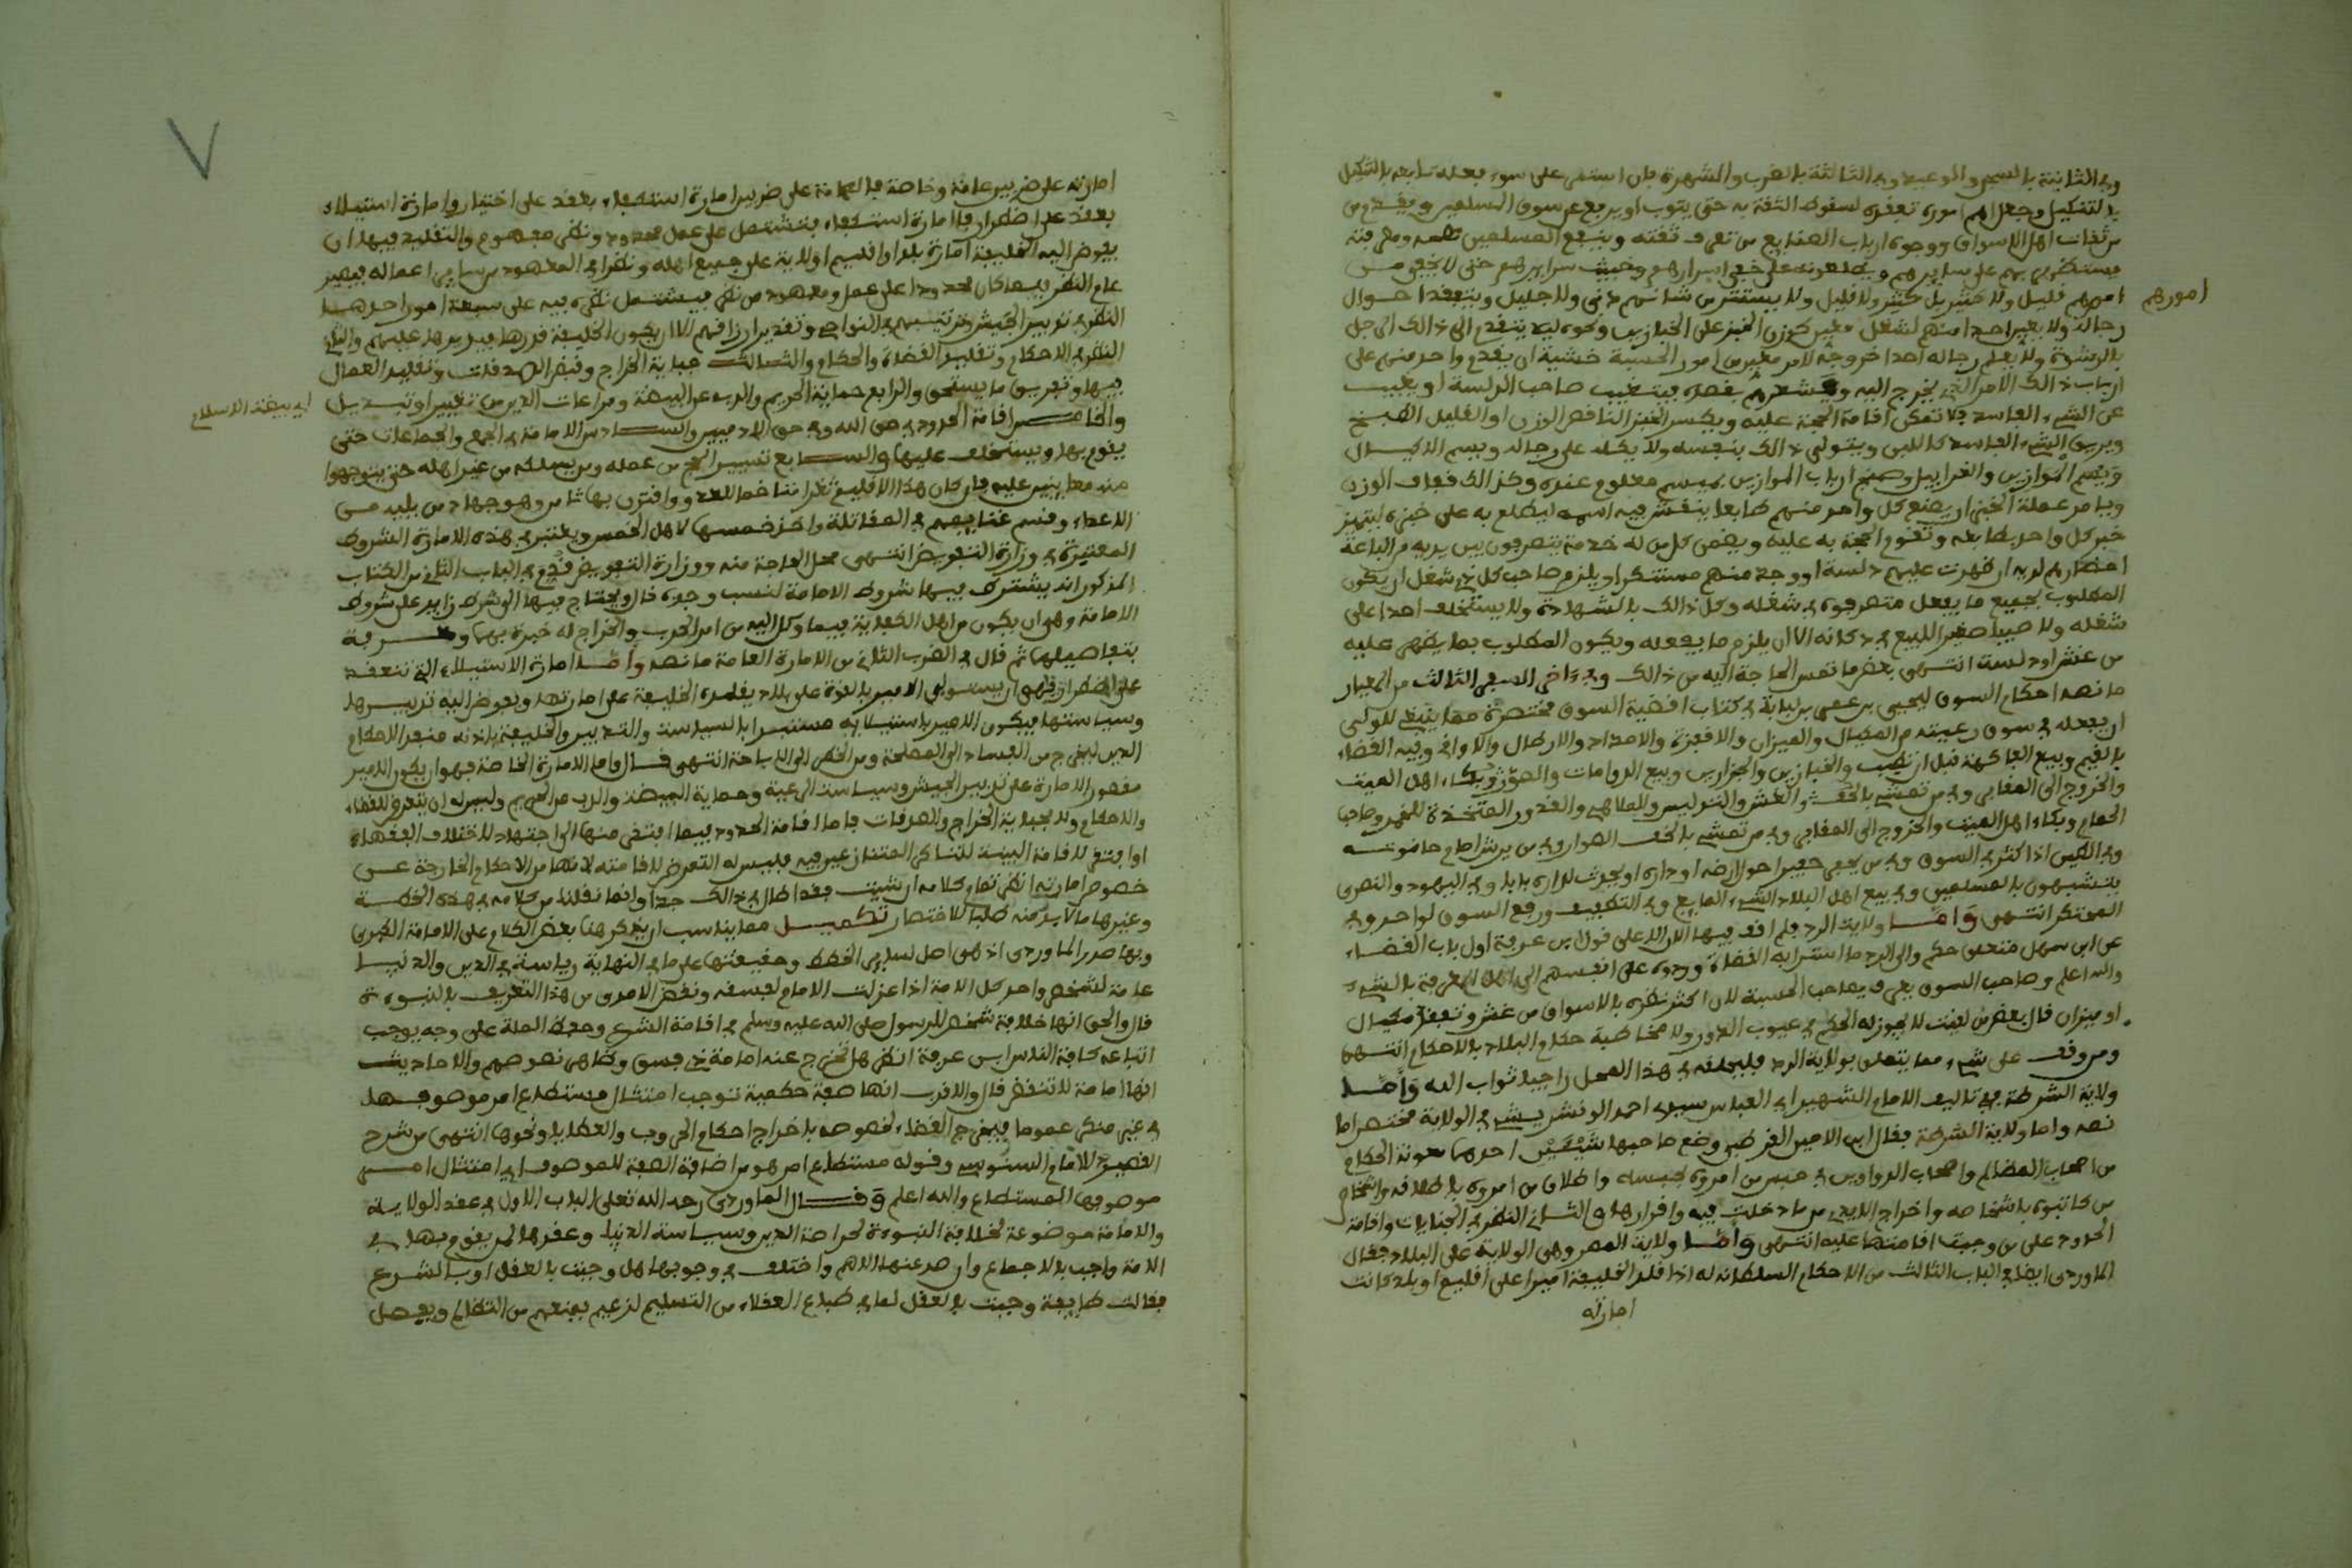 وفي الثانية بالسجن والوعيد وفي الثالثة بالضرب والشهرة فان استمر على سوء فعله تابعه بالتنكيل
بالتنكيل وجعل اهم اموره تفقده لسقوط الثقة به حتى يتوب او يرتفع عن سوق المسلمين ويقدم من
من ثقات اهل الاسواق ووجوه ارباب الصنايع من تعرف ثقته وينفع المسلمين
يستظهر بهم على سايرهم ويطلعونه على خفي اسرارهم وخبيث سرايرهم حتى لا يخفى من
امرهم قليل ولا كثير بل كثير ولا قليل ولا يستتر من شانهم دني ولا جليل ويتفقد احوال
امورهم
رجاله ولا يعير احدا منهم لشغل معين كوزن الخبز على الخبازين ونحوه ليلا يتقدم الى ذالك الرجل
بالرشوة ولا يعلم رجاله احدا خروجه لامر معين من امور الحسبة خشية ان يقدم واحد منهم على
ارباب ذالك الامر الذي يخرج اليه ويشعرهم بقصده فيتغيب صاحب الدلسة او يغيب
عن الشيء الفاسد فلا تمكن اقامة الحجة عليه ويكسر الخبز الناقص الوزن او القليل الطبخ
ويريق الشيء الفاسد كاللبن ويتولى ذالك بنفسه ولا يكله على رجاله ويسم الاكيال
ويسم الموازين والغرابيل وصنج ارباب الموازين بميسم معلوم عنده وكذالك قفاف الوزن
ويامر عملة الخبز ان يصنع كل واحد منهم طابعا ينقش فيه اسمه ليطبع به على خبزه ليتميز
خبز كل واحد بطابعه وتقوم الحجة به عليه ويضمن كل من له خدمة يتصرفون بين يديه من الباعة
احضارهم لديه ان ظهرت عليهم دلسة او وجد منهم مستنكرا ويلزم صاحب كل ذي شغل ان يكون
المطلوب بجميع ما يفعل متصرفوه في شغله وكل ذالك بالشهادة ولا يستخلف احدا على
شغله ولا صبيا صغيرا للبيع في دكانه الا ان يلزم ما يفعله ويكون المطلوب بما يظهر عليه
من غش او دلسة انتهى بعض ما تمس الحاجة اليه من ذالك وفي ءاخر السفر الثالث من المعيار
ما نصه احكام السوق ليحيى بن عمر من لبابة في كتاب اقضية السوق مختصرة مما ينبغي للوالي
ان يفعله في سوق رعيته من المكيال والميزان والاقفزة والامداد والارطال والاواقي وفيه القضاء
بالقيم وبيع الفاكهة قبل ان تطيب والخبازين والجزارين وبيع الدوامات والصور وبكاء اهل الميت
والخروج الى المقابر وفي من تمشي بالخف والغش والتدليس والملاهي والقدور المتخذة للخمر وصاحب
الحمام وبكاء اهل الميت والخروج الى المقابر وفي من تمشي بالخف الصرار وفي من يرش امام حانوته
وفي الطين اذا كثر في السوق وفي من يحفر حفيرا حول ارضه او داره او يحدث لداره بابا وفي اليهود والنصرى
يتشبهون بالمسلمين وفي بيع اهل البلاد الشيء المايع وفي التطفيف ورفع السوق لواحد وفي
المحتكر انتهى وأما ولاية الرد فلم اقف فيها الان الا على قول ابن عرفة اول باب القضاء
عن ابن سهل متعلق حكم والي الرد ما استرابه القضاة وردوه على انفسهم
والله اعلم وصاحب السوق يعرف بصاحب الحسبة لان اكثر نظره بالاسواق من غش وتفقد مكيال
او ميزان قال بعض من لقيت لا يجوز له الحكم في عيوب الدور ولا مخاطبة حكام البلاد بالاحكام انتهى
ومن وقف على شيء مما يتعلق بولاية الرد فليلحقه في هذا المحل راجيا ثواب الله وأما
ولاية الشرطة ففي تاليف الامام الشهير ابي العباس سيدي احمد الونشريسي في الولاية مختصرا ما
نصه واما ولاية الشرطة فقال ابن الامين القرطبي وضع صاحبها شيئين احدهما معونة الحكام
من اصحاب المظالم واصحاب الدواوين في حبس من امروه بحبسه واطلاق من امروه باطلاقه واشخاص
من كاتبوه باشخاصه واخراج الايدي مما دخلت فيه واقرارها والثاني النظر في الجنايات واقامة
الحدود على من وجبت اقامتها عليه انتهى وأما ولاية المصر وهي الولاية على البلاد فقال
الماوردي ايضا في الباب الثالث من الاحكام السلطانية اذا قلد الخليفة اميرا على اقليم او بلد كانت
امارته
امارته على ضربين عامة وخاصة فالعامة على ضربين امارة استكفاء بعقد على اختيار وامارة استيلاء
بعقد على اضطرار فاما امارة استكفاء فتشتمل على عمل محدود ونظر معهود والتقليد فيها ان
يفوض اليه الخليفة امارة بلد او اقليم او لاية على جميع اهله ونظرا في المعهود من ساير اعماله فيصير
عام النظر فيما كان محدودا على عمل ومعهود من نظر فيشتمل نظره فيه على سبعة امور احدها
النظر في تدبير الجيش وترتيبهم في النواحي وتقدير ارزاقهم الا ان يكون الخليفة قدرها فيديرها عليهم والثاني
النظر في الاحكام وتقليد القضاة والحكام والثالث جباية الخراج وقبض الصدقات وتقليد العمال
فيها وتفريق ما يستحق والرابع حماية الحريم والذب عن البيضة ومراعات الدين من تغيير او تبديل
اي بيضة الاسلام
والخامس اقامة الحدود في حق الله وفي حق الادميين والسادس الامامة في الجمع والجماعات حتى
يقوم بها ويستخلف عليها والسابع تسيير الحج من عمله ومن يسلكه من غير اهله حتى يتوجهوا
منه معانين عليه فان كان هذا الاقليم ثغرا متاخما للعدو اقترن بها ثامن وهو جهاد من يليه من
الاعداء وقسم غنايمهم في المقاتلة واخذ خمسها لاهل الخمس ويعتبر في هذه الامارة الشروط
المعتبرة في وزارة التفويض انتهى محل الحاجة منه ووزارة التفويض قدم في الباب الثاني من الكتاب
المذكور انه يشترط فيها شروط الامامة لنسب وحده قال ويحتاج فيها الى شرط زايد على شروط
الامامة وهو ان يكون من اهل الكفاية فيما وكل اليه من امر الحرب والخراج له خبرة بهما ومعرفة
بتفاصيلهما ثم قال في الضرب الثاني من الامارة العامة ما نصه وأما امارة الاستيلاء التي تنعقد
على اضطرار فهي ان يستولي الامير بالقوة على بلاد يقلده الخليفة على امارتها ويفوض اليه تدبيرها
وسياستها فيكون الامير باستيلايه مستبدا بالسياسة والتدبير والخليفة باذنه منفذ الاحكام
الدين ليخرج من الفساد الى المصلحة ومن الحظر الى الاباحة انتهى قال واما الامارة الخاصة فهو ان يكون الامير
مقصور الامارة على تدبير الجيش وسياسة الرعية وحماية البيضة والذب عن الحريم وليس له ان يتعرض للقضاء
والاحكام ولا لجباية الخراج والصدقات فاما اقامة الحدود فيما افتقر منها الى اجتهاد لاختلاف الفقهاء
او افتقر لاقامة البينة لتناكر المتنازعين فيه فليس له التعرض لاقامته لانها من الاحكام الخارجة عن
خصوص امارته انظر تمام كلامه ان شيت فقد اطال في ذالك جدا وانما نقلنا من كلامه في هذه الخطة
وغيرها ما لابد منه طلبا للاختصار تكميل مما يناسب ان يذكر هنا بعض الكلام على الامامة الكبرى
وبها صدر الماوردي اذ هي اصل لساير الخطط وحقيقتها على ما في النهاية رياسة في الدين والدنيا
عامة لشخص واحد كل الامة اذا عزلت الامام لفسقه ونقض الامدي من هذا التعريف بالنبوءة
قال والحق انها خلافة شخص للرسول صلى الله عليه وسلم في اقامة الشرع وحفظ الملة على وجه يوجب
اتباعه كافة الناس ابن عرفة انظر هل تخرج عنه امامة ذي فسق وظاهر نصوصهم والاحاديث
انها امامة لا تنقض قال والاقرب انها صفة حكمية توجب امتثال مستطاع امر موصوفها
في غير منكر عموما فيخرج القضاء لخصوصه باخراج احكام الحروب والعطايا ونحوها انتهى من شرح
القصير للامام السنوسي وقوله مستطاع امر هو من اضافة الصفة للموصوف اي امتثال امر
موصوفها المستطاع والله اعلم وقال الماوردي رحمه الله تعلى الباب الاول في عقد الولاية
والامامة موضوعة لخلافة النبوءة لحراسة الدين وسياسة الدنيا وعقدها لمن يقوم بها في
الامة واجب بالاجماع وان صد عنها الاصم واختلف في وجوبها هل وجبت بالعقل او بالشرع
فقالت طايفة وجبت بالعقل لما في طباع العقلاء من التسليم لزعيم يمنعهم من التظالم ويفصل